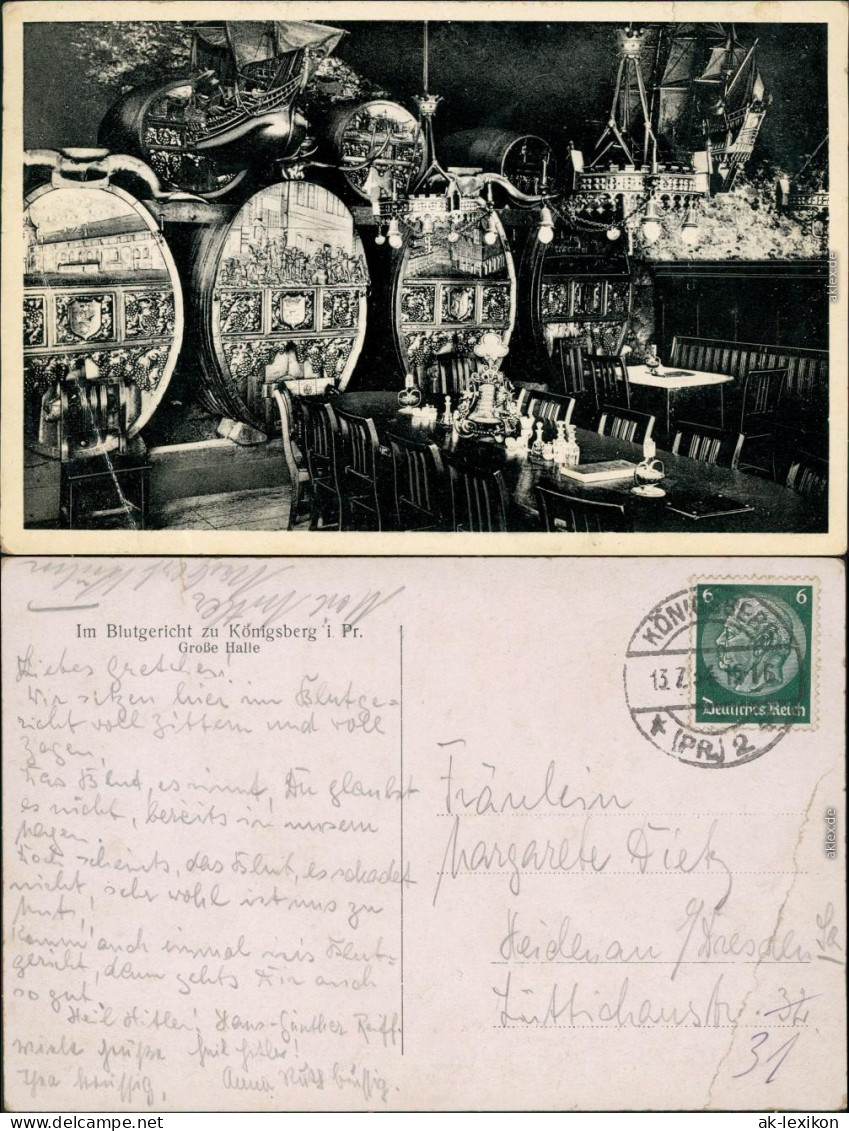 Im Blutgericht zu Königsberg i. Pr.
Große Halle
Liebes Gretchen!
Wir sitzen hier im Blutge=
richt voll Zittern und voll
Zagen,
Das Blut, es rinnt, Du glaubst
es nicht, bereits in unsern
Magen.
Doch scheints, das Blut, es schadet
nicht, sehr wohl ist uns zu
Mut,
Komm auch einmal ins Blut=
gericht, dann gehts Dir auch
so gut.
Heil Hitler! Hans-Günther
viele Grüße Heil Hitler!
Anna Ruth
KÖNIGSBERG
13.7.
(PR.) 2
6 6
Deutsches Reich
Fräulein
Margarete Dietz
Heidenau / Dresden
Sa
31
aklex.de
aklex.de
ak-lexikon